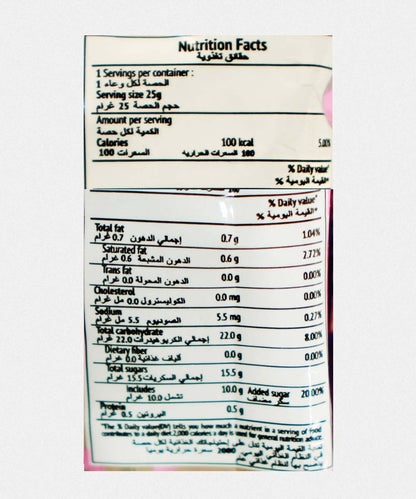 Nutrition Facts
حقائق تغذوية
1 Servings per container :
الحصة لكل وعاء 1
Serving size 25g
حجم الحصة 25 غرام
Amount per serving
الكمية لكل حصة
Calories 100 kcal 5.00%
السعرات 100 السعرات الحراريه 100
% Daily value*
القيمة اليومية %*
% Daily value*
القيمة اليومية %*
Total fat 0.7 g 1.04%
إجمالي الدهون 0.7 غرام
Saturated fat 0.6 g 2.72%
الدهون المشبعة 0.6 غرام
Trans fat 0.0 g 0.00%
الدهون المحولة 0.0 غرام
Cholesterol 0.0 mg 0.00%
الكوليسترول 0.0 مل غرام
Sodium 5.5 mg 0.27%
الصوديوم 5.5 مل غرام
Total carbohydrate 22.0 g 8.00%
إجمالي الكربوهيدرات 22.0 غرام
Dietary fiber 0.0 g 0.00%
ألياف غذائية 0.0 غرام
Total sugars 15.5 g
إجمالي السكريات 15.5 غرام
Includes 10.0 g Added sugar 20.00%
تشمل 10.0 غرام سكر مضاف
Protein 0.5 g
البروتين 0.5 غرام
*The % Daily value(DV) tells you how much a nutrient in a serving of food
contributes to a daily diet.2,000 calories a day is used for general nutrition advice.
نسبة القيمة اليومية لكل على إحتياجاتك الغذائية لكل حصة
في النظام الغذائي اليومي
2000 سعرة حرارية يوميا